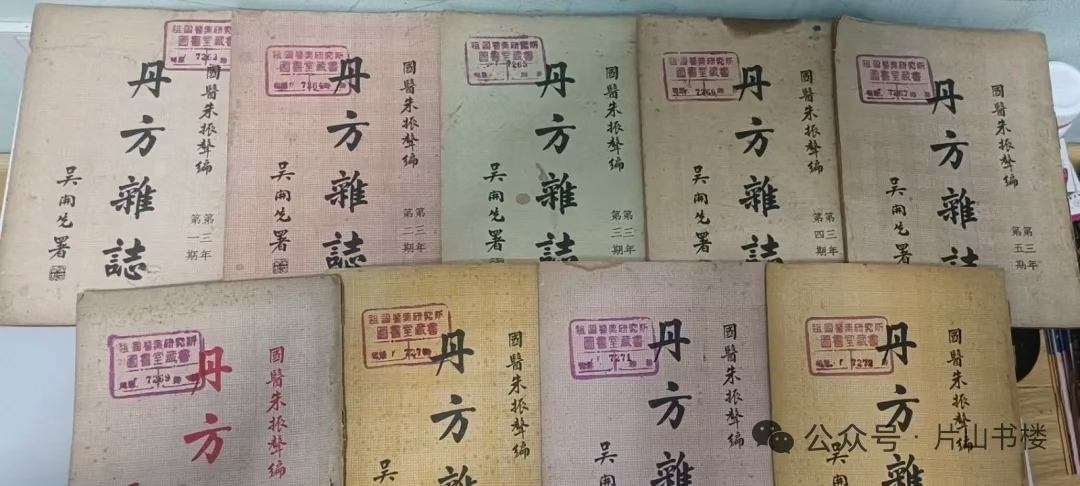 祖國醫藥研究所
圖書室藏書
7263
國醫朱振聲編
丹方雜誌
第三年
第一期
吴開先署
祖國醫藥研究所
圖書室藏書
7264
國醫朱振聲編
丹方雜誌
第三年
第二期
吴開先署
祖國醫藥研究所
圖書室藏書
7265
國醫朱振聲編
丹方雜誌
第三年
第三期
吴開先署
祖國醫藥研究所
圖書室藏書
7266
國醫朱振聲編
丹方雜誌
第三年
第四期
吴開先署
祖國醫藥研究所
圖書室藏書
7267
國醫朱振聲編
丹方雜誌
第三年
第五期
吴開先署
祖國醫藥研究所
圖書室藏書
7269
國醫朱振聲編
丹方
祖國醫藥研究所
圖書室藏書
國醫朱振聲編
丹方雜
吴
祖國醫藥研究所
圖書室藏書
7271
國醫朱振聲編
丹方雜
吴開
祖國醫藥研究所
圖書室藏書
7272
國醫朱振聲編
丹方雜
吴
公众号·片山书楼